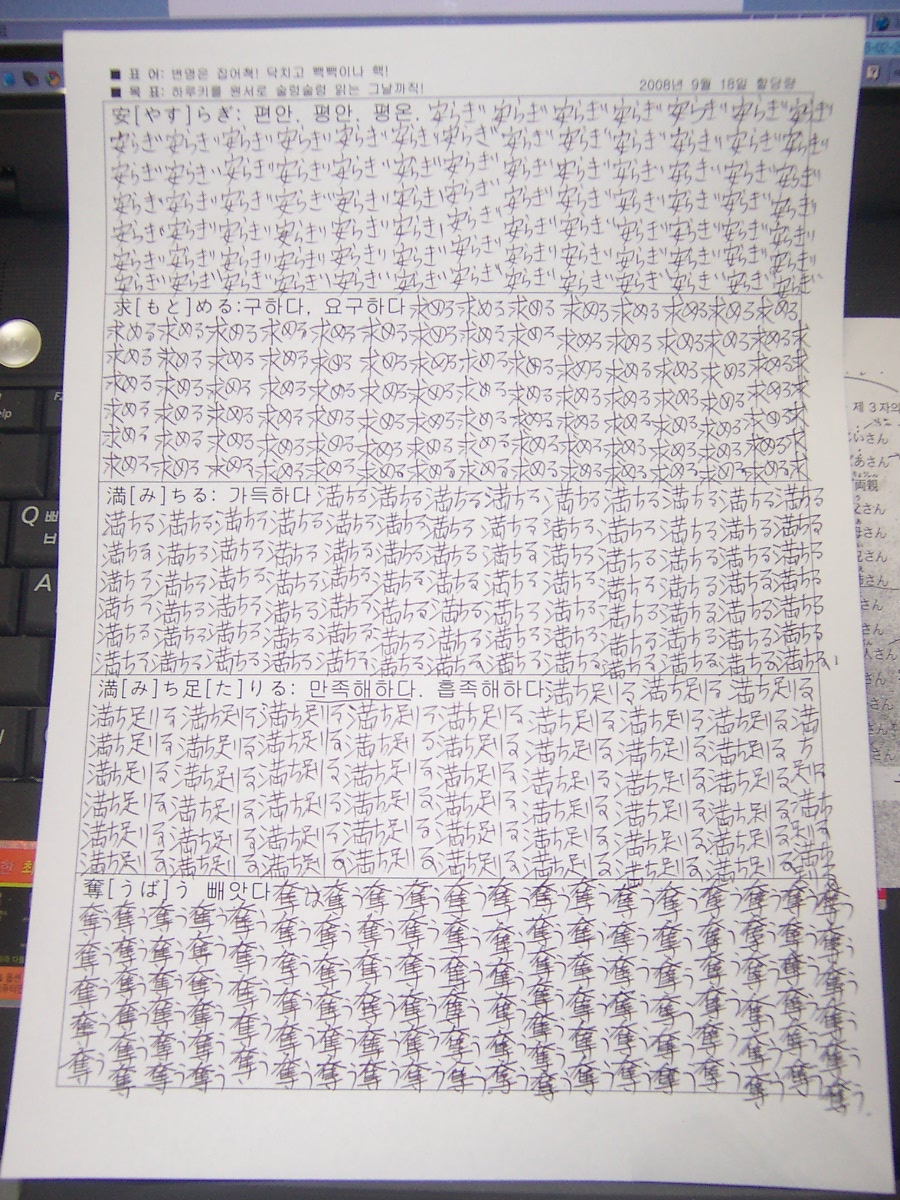 ■ 표 어: 변명은 집어쳑! 닥치고 빽빽이나 핵!
■ 목 표: 하루키를 원서로 술렁술렁 읽는 그날까직!
2008년 9월 18일 할당량
安[やす]らぎ: 편안, 평안, 평온. 安らぎ 安らぎ 安らぎ 安らぎ 安らぎ 安らぎ 安らぎ
安らぎ 安らぎ 安らぎ 安らぎ 安らぎ 安らぎ 安らぎ 安らぎ 安らぎ 安らぎ 安らぎ 安らぎ 安らぎ
安らぎ 安らぎ 安らぎ 安らぎ 安らぎ 安らぎ 安らぎ 安らぎ 安らぎ 安らぎ 安らぎ 安らぎ 安らぎ
安らぎ 安らぎ 安らぎ 安らぎ 安らぎ 安らぎ 安らぎ 安らぎ 安らぎ 安らぎ 安らぎ 安らぎ 安らぎ
安らぎ 安らぎ 安らぎ 安らぎ 安らぎ 安らぎ 安らぎ 安らぎ 安らぎ 安らぎ 安らぎ 安らぎ 安らぎ
安らぎ 安らぎ 安らぎ 安らぎ 安らぎ 安らぎ 安らぎ 安らぎ 安らぎ 安らぎ 安らぎ 安らぎ 安らぎ
安らぎ 安らぎ 安らぎ 安らぎ 安らぎ 安らぎ 安らぎ 安らぎ 安らぎ 安らぎ 安らぎ 安らぎ 安らぎ
求[もと]める:구하다, 요구하다 求める 求める 求める 求める 求める 求める 求める 求める
求める 求める 求める 求める 求める 求める 求める 求める 求める 求める 求める 求める 求める 求める 求
求める 求める 求める 求める 求める 求める 求める 求める 求める 求める 求める 求める 求める 求める 求
求める 求める 求める 求める 求める 求める 求める 求める 求める 求める 求める 求める 求める 求める 求
求める 求める 求める 求める 求める 求める 求める 求める 求める 求める 求める 求める 求める 求める 求
求める 求める 求める 求める 求める 求める 求める 求める 求める 求める 求める 求める 求める 求める 求
求める 求める 求める 求める 求める 求める 求める 求める 求める 求める 求める 求める 求める 求める 求
満[み]ちる: 가득하다 満ちる 満ちる 満ちる 満ちる 満ちる 満ちる 満ちる 満ちる 満ちる
満ちる 満ちる 満ちる 満ちる 満ちる 満ちる 満ちる 満ちる 満ちる 満ちる 満ちる 満ちる 満ちる
満ちる 満ちる 満ちる 満ちる 満ちる 満ちる 満ちる 満ちる 満ちる 満ちる 満ちる 満ちる 満ちる
満ちる 満ちる 満ちる 満ちる 満ちる 満ちる 満ちる 満ちる 満ちる 満ちる 満ちる 満ちる 満ちる
満ちる 満ちる 満ちる 満ちる 満ちる 満ちる 満ちる 満ちる 満ちる 満ちる 満ちる 満ちる 満ちる
満ちる 満ちる 満ちる 満ちる 満ちる 満ちる 満ちる 満ちる 満ちる 満ちる 満ちる 満ちる 満ちる
満ちる 満ちる 満ちる 満ちる 満ちる 満ちる 満ちる 満ちる 満ちる 満ちる 満ちる 満ちる 満ちる
満[み]ち足[た]りる: 만족해하다. 흡족해하다 満ち足りる 満ち足りる 満ち足りる
満ち足りる 満ち足りる 満ち足りる 満ち足りる 満ち足りる 満ち足りる 満ち足りる 満ち足りる 満
満ち足りる 満ち足りる 満ち足りる 満ち足りる 満ち足りる 満ち足りる 満ち足りる 満ち足りる ち
満ち足りる 満ち足りる 満ち足りる 満ち足りる 満ち足りる 満ち足りる 満ち足りる 満ち足りる 足りる
満ち足りる 満ち足りる 満ち足りる 満ち足りる 満ち足りる 満ち足りる 満ち足りる 満ち足りる 満ち
満ち足りる 満ち足りる 満ち足りる 満ち足りる 満ち足りる 満ち足りる 満ち足りる 満ち足りる 足り
満ち足りる 満ち足りる 満ち足りる 満ち足りる 満ち足りる 満ち足りる 満ち足りる 満ち足りる
奪[うば]う 빼앗다 奪う 奪う 奪う 奪う 奪う 奪う 奪う 奪う 奪う 奪う 奪う 奪う 奪う 奪う
奪う 奪う 奪う 奪う 奪う 奪う 奪う 奪う 奪う 奪う 奪う 奪う 奪う 奪う 奪う 奪う 奪う 奪う 奪う
奪う 奪う 奪う 奪う 奪う 奪う 奪う 奪う 奪う 奪う 奪う 奪う 奪う 奪う 奪う 奪う 奪う 奪う 奪う
奪う 奪う 奪う 奪う 奪う 奪う 奪う 奪う 奪う 奪う 奪う 奪う 奪う 奪う 奪う 奪う 奪う 奪う 奪う
奪う 奪う 奪う 奪う 奪う 奪う 奪う 奪う 奪う 奪う 奪う 奪う 奪う 奪う 奪う 奪う 奪う 奪う 奪う
奪う 奪う 奪う 奪う 奪う 奪う 奪う 奪う 奪う 奪う 奪う 奪う 奪う 奪う 奪う 奪う 奪う 奪う 奪う
Q ㅃ
ㅂ
A
제 3 자의
さん
あさん
両親
さん